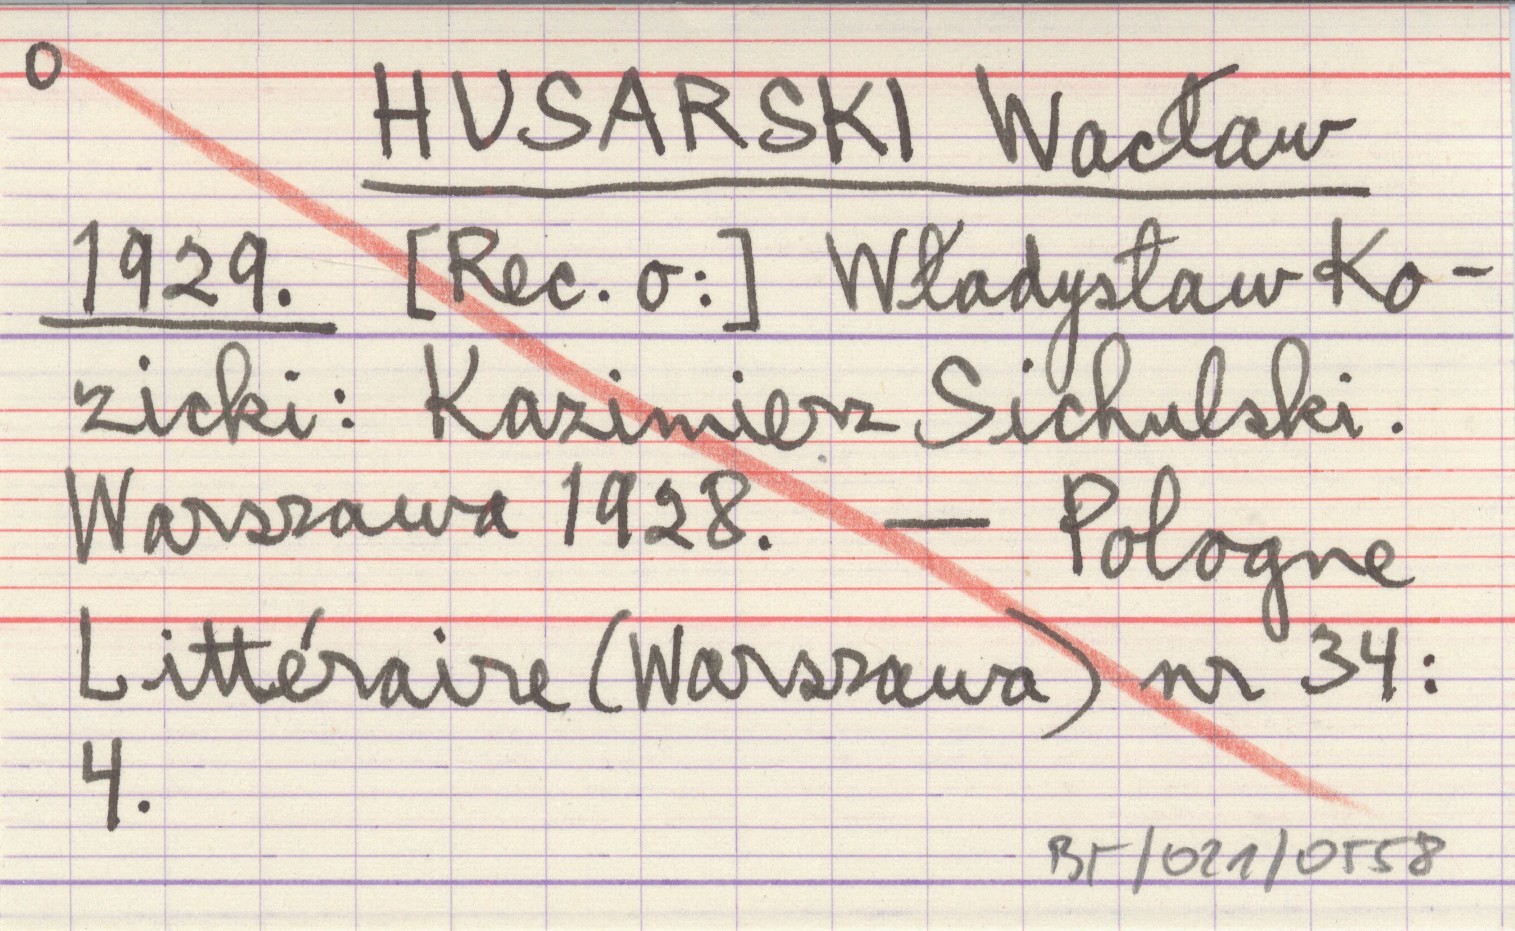 O
HUSARSKI Wacław
1929. [Rec. o:] Władysław Ko-
zicki: Kazimierz Sichulski.
Warszawa 1928. — Pologne
Littéraire (Warszawa) nr 34:
4.
BF/021/0558